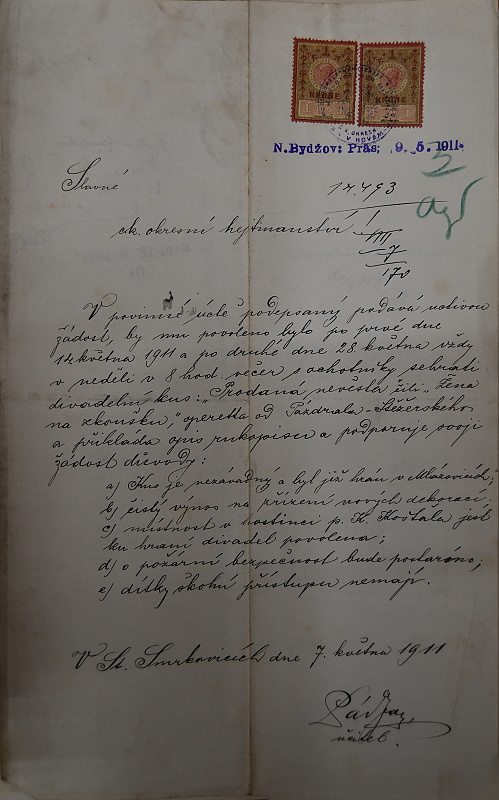 KRONE KRONE
N.Bydžov: Präs: 9. 5. 1911.
Slavné
14.493
ck. okresní hejtmanství!
III
7
170
V povinné úctě podepsaný podává uctivou
žádost, by mu povoleno bylo po prvé dne
14. května 1911 a po druhé dne 28. května vždy
v neděli v 8 hod. večer s ochotníky sehráti
divadelní kus: „Prodaná nevěsta čili „Žena
na zkoušku," opereta od Pázdrala-Stěžerského
a přikládá opis rukopisu a podporuje svoji
žádost důvody:
a) Kus je nezávadný a byl již hrán v Mlázovicích;
b) čistý výnos na zřízení nových dekorací.
c) místnost v hostinci p. K. Košťála jest
ku hraní divadel povolena;
d) o požární bezpečnost bude postaráno;
e) dítky školní přístupu nemají.
V St. Smrkovicích dne 7. května 1911
učitel.